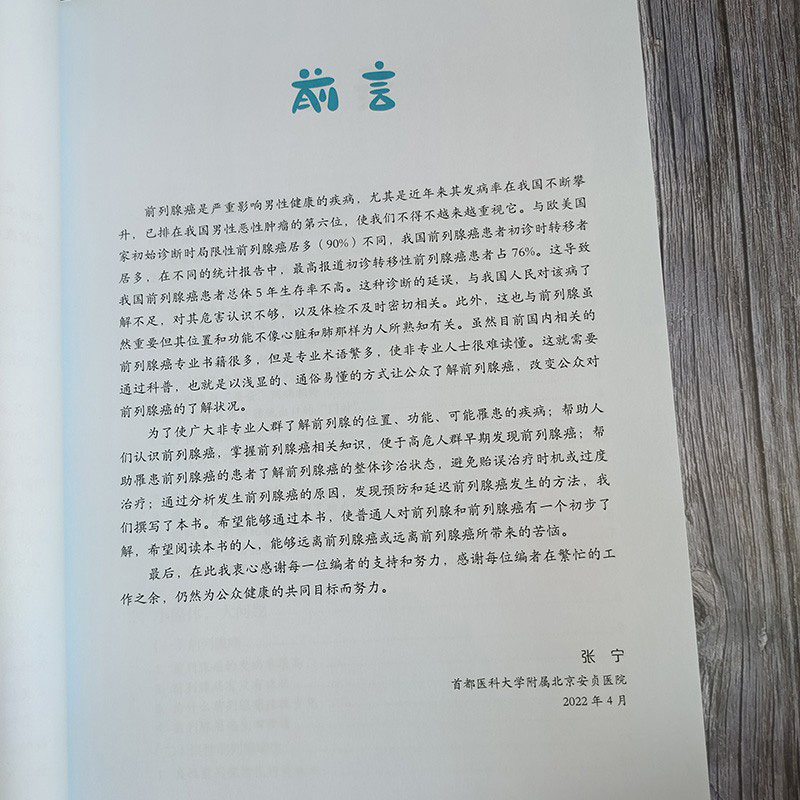 前言
前列腺癌是严重影响男性健康的疾病，尤其是近年来其发病率在我国不断攀
升，已排在我国男性恶性肿瘤的第六位，使我们不得不越来越重视它。与欧美国
家初始诊断时局限性前列腺癌居多（90%）不同，我国前列腺癌患者初诊时转移者
居多，在不同的统计报告中，最高报道初诊转移性前列腺癌患者占 76%。这导致
我国前列腺癌患者总体 5 年生存率不高。这种诊断的延误，与我国人民对该病了
解不足，对其危害认识不够，以及体检不及时密切相关。此外，这也与前列腺虽
然重要但其位置和功能不像心脏和肺那样为人所熟知有关。虽然目前国内相关的
前列腺癌专业书籍很多，但是专业术语繁多，使非专业人士很难读懂。这就需要
通过科普，也就是以浅显的、通俗易懂的方式让公众了解前列腺癌，改变公众对
前列腺癌的了解状况。
为了使广大非专业人群了解前列腺的位置、功能、可能罹患的疾病；帮助人
们认识前列腺癌，掌握前列腺癌相关知识，便于高危人群早期发现前列腺癌；帮
助罹患前列腺癌的患者了解前列腺癌的整体诊治状态，避免贻误治疗时机或过度
治疗；通过分析发生前列腺癌的原因，发现预防和延迟前列腺癌发生的方法，我
们撰写了本书。希望能够通过本书，使普通人对前列腺和前列腺癌有一个初步了
解，希望阅读本书的人，能够远离前列腺癌或远离前列腺癌所带来的苦恼。
最后，在此我衷心感谢每一位编者的支持和努力，感谢每位编者在繁忙的工
作之余，仍然为公众健康的共同目标而努力。
张 宁
首都医科大学附属北京安贞医院
2022 年 4 月